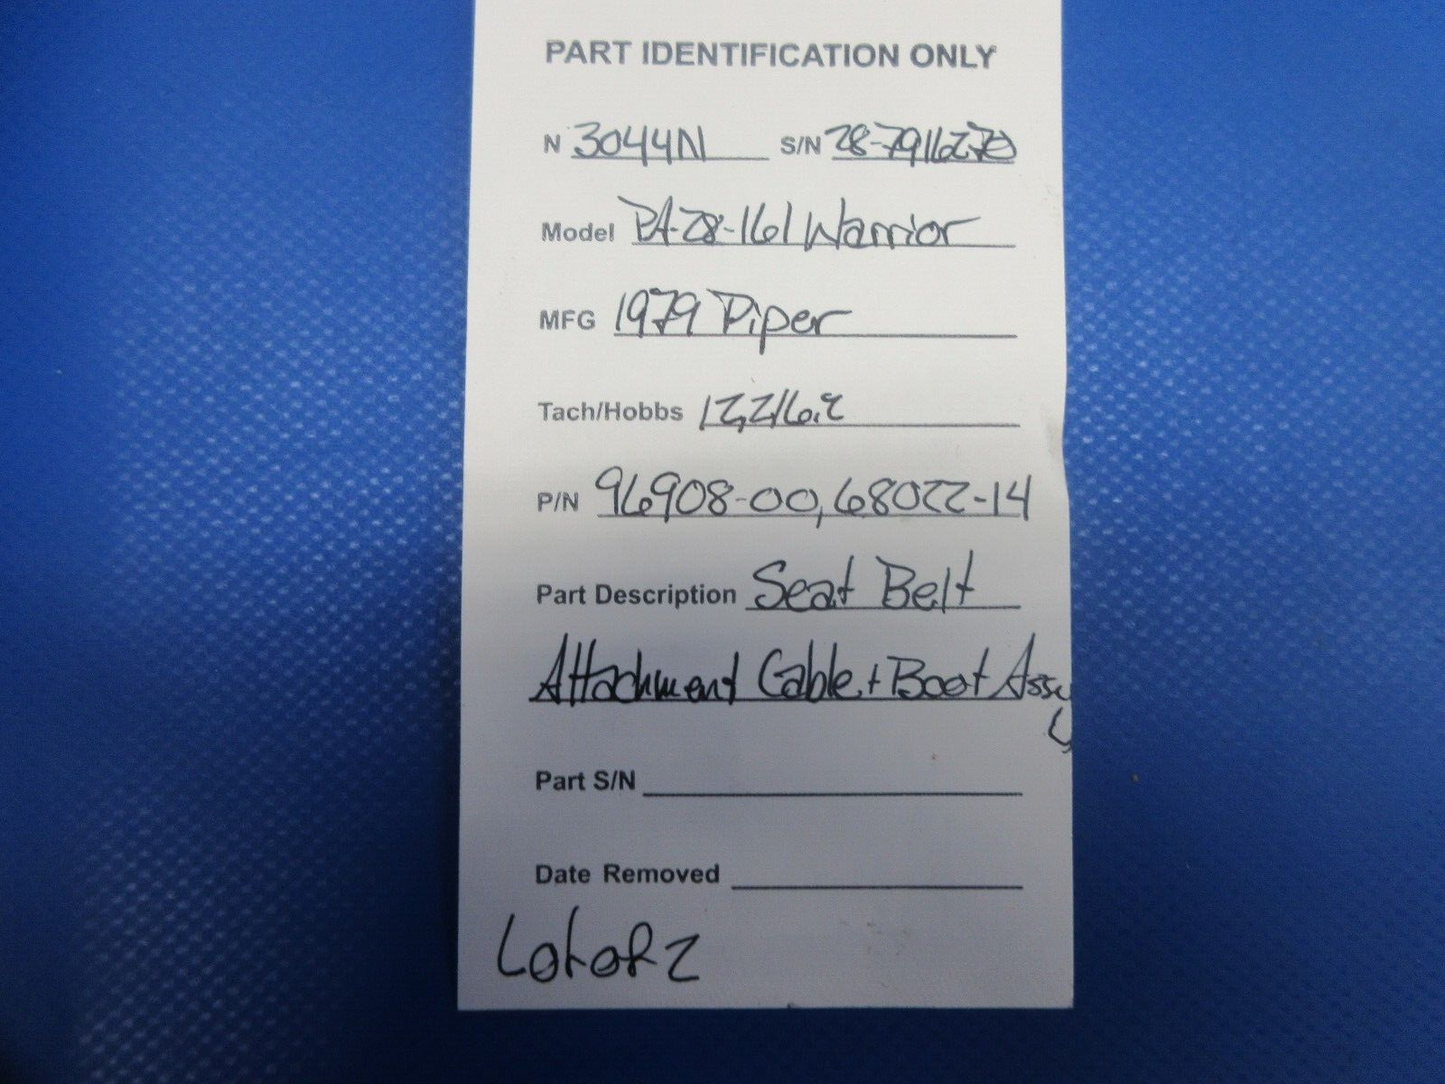 PART IDENTIFICATION ONLY
N 3044N S/N 28-7916270
Model PA-28-161 Warrior
MFG 1979 Piper
Tach/Hobbs 12,216.2
P/N 96908-00, 68022-14
Part Description Seat Belt
Attachment Cable + Boot Assy
Part S/N
Date Removed
Lot of 2